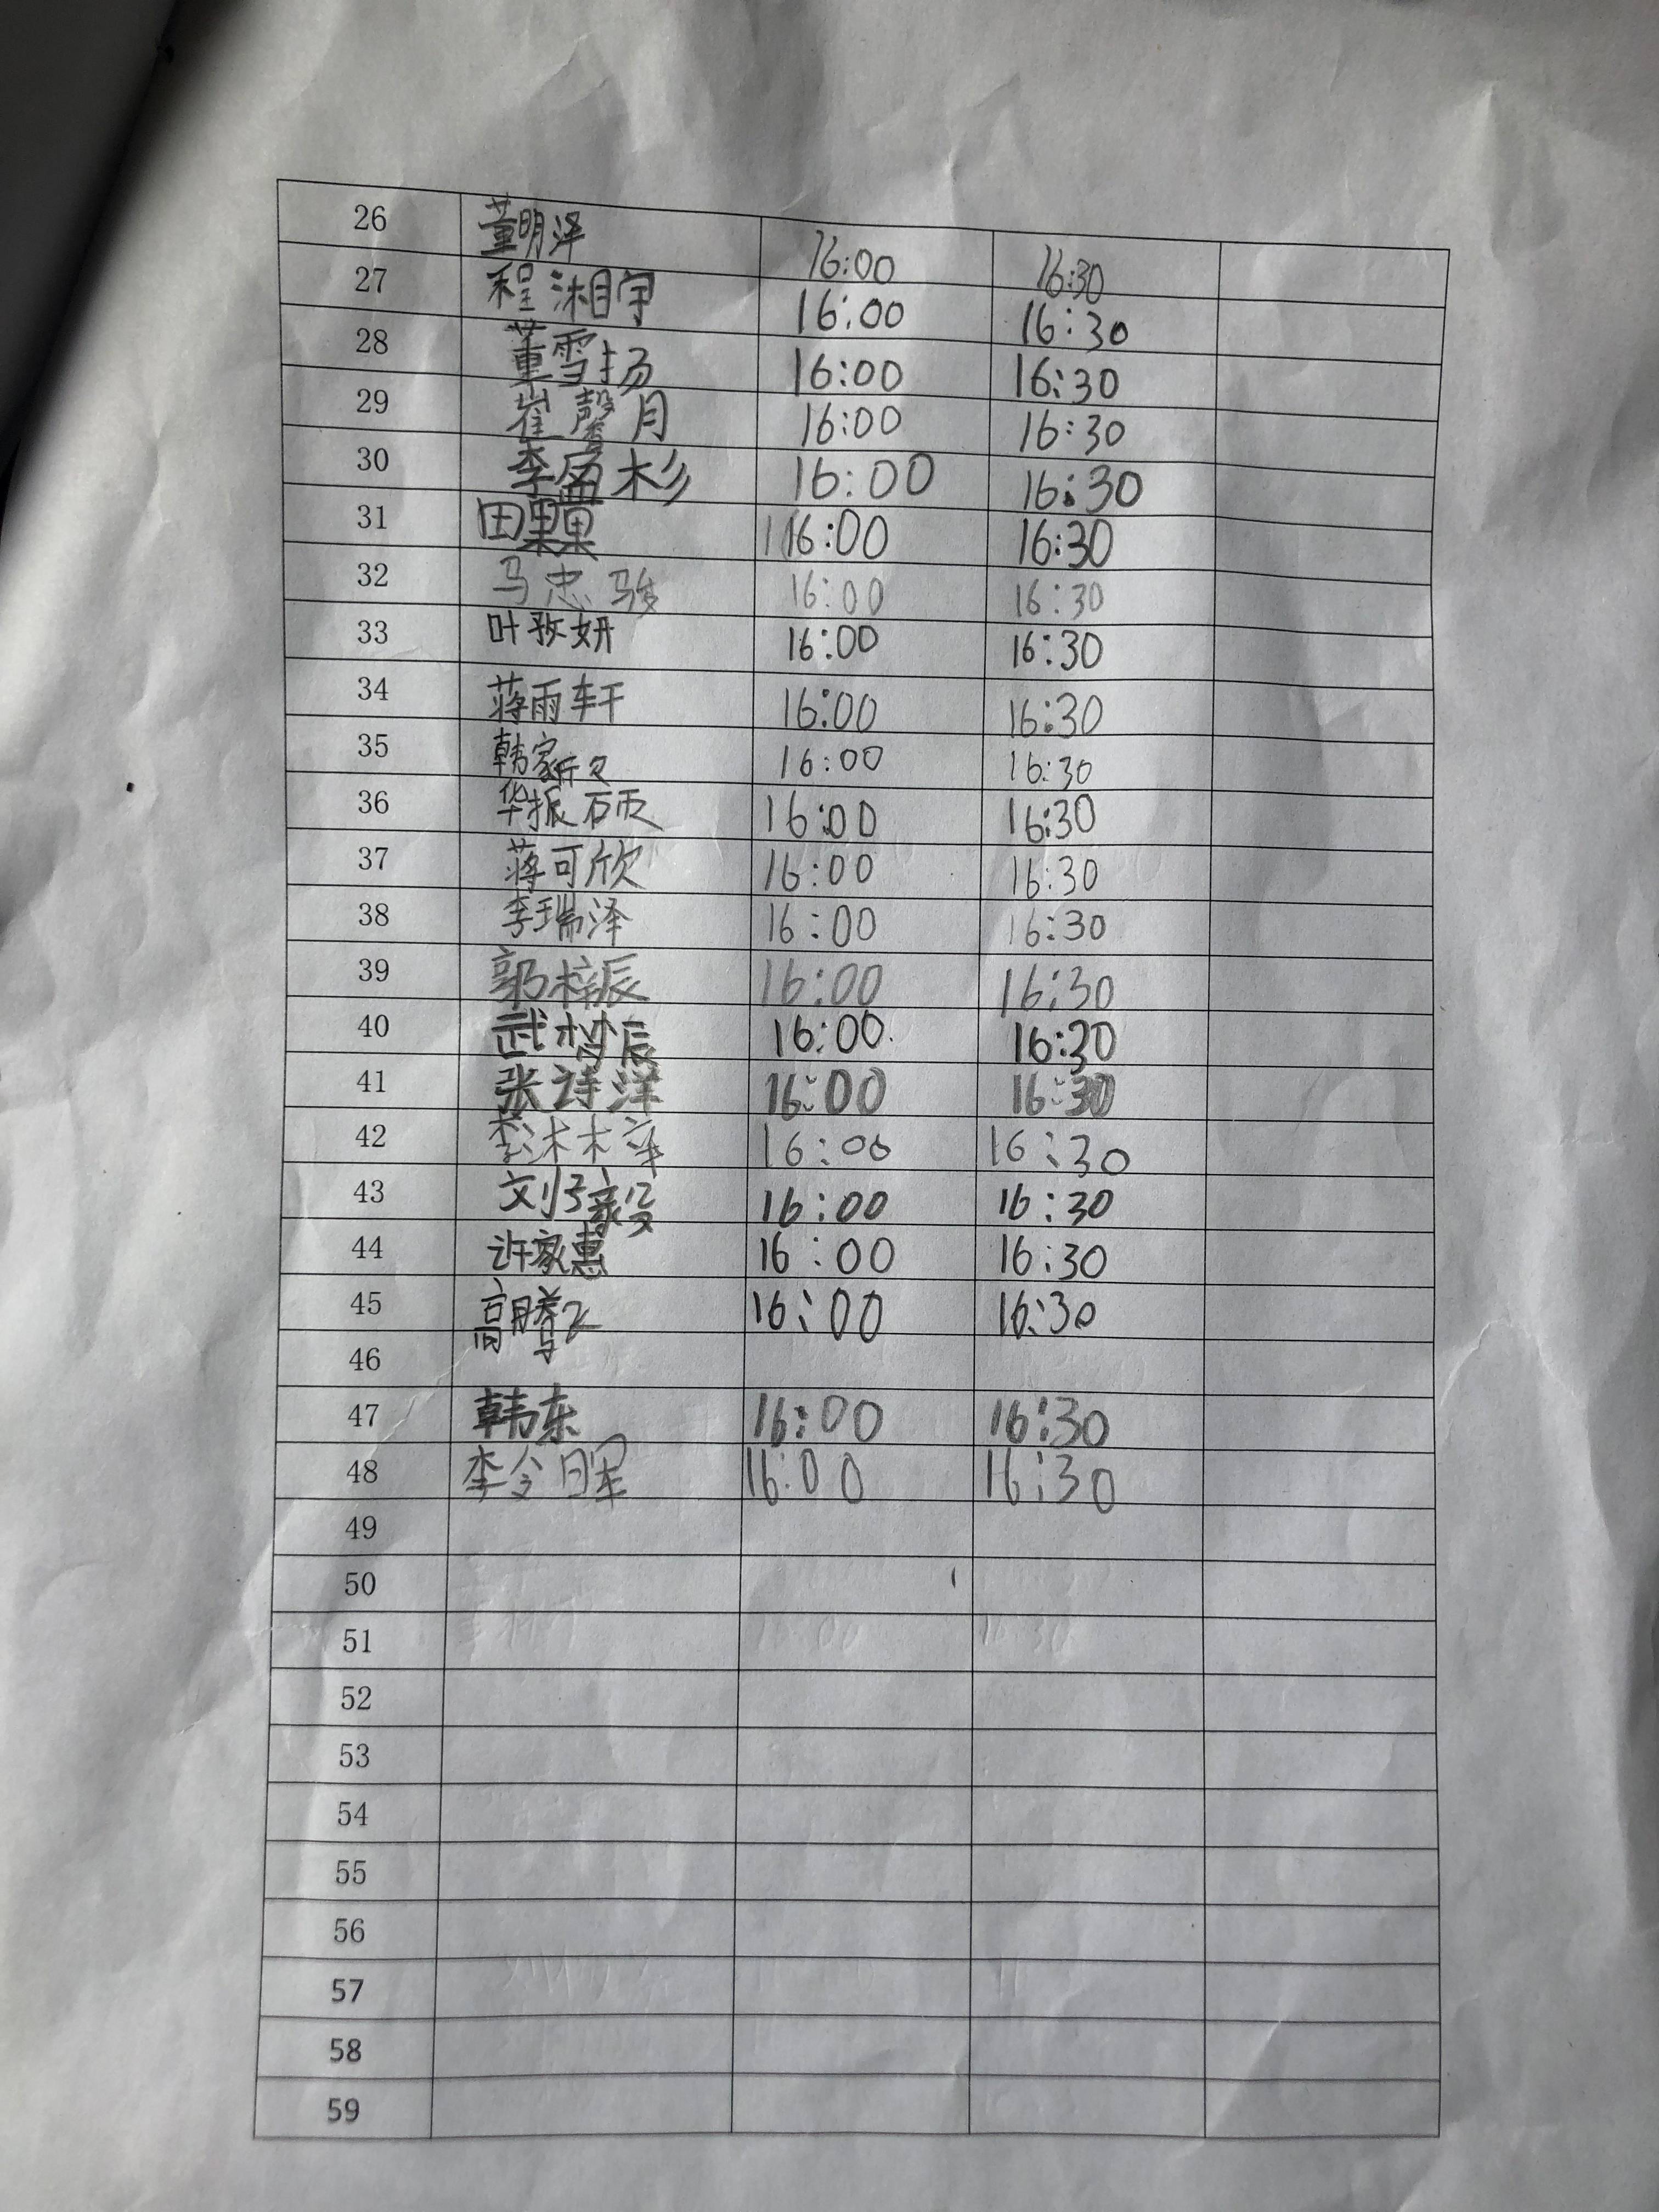 26 董明泽 16:00 16:30
27 程湘宇 16:00 16:30
28 董雪扬 16:00 16:30
29 崔馨月 16:00 16:30
30 李盈杉 16:00 16:30
31 田果果 16:00 16:30
32 马忠骏 16:00 16:30
33 叶孜妍 16:00 16:30
34 蒋雨轩 16:00 16:30
35 韩家 16:00 16:30
36 华振硕 16:00 16:30
37 蒋可欣 16:00 16:30
38 李瑞泽 16:00 16:30
39 郭梓辰 16:00 16:30
40 武梦辰 16:00 16:30
41 张诗洋 16:00 16:30
42 李沐梓 16:00 16:30
43 刘 16:00 16:30
44 许家惠 16:00 16:30
45 高腾飞 16:00 16:30
46
47 韩东 16:00 16:30
48 李令晖 16:00 16:30
49
50
51
52
53
54
55
56
57
58
59